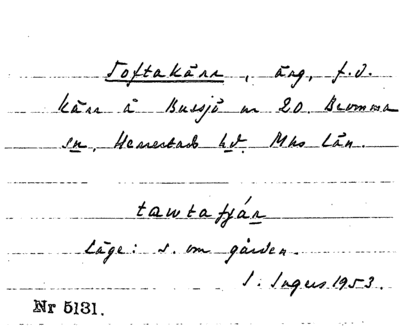 Toftakärr, äng, f.d.
kärr å Bussjö nr 20. Bromma
sn. Herrestads hd. Mhs län.
tawtafjár
Läge: s. om gården.
S. Ingers 1953.
Nr 5131.